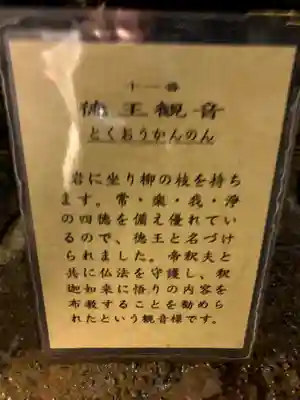 十一番
徳王観音
とくおうかんのん
岩に坐り柳の枝を持ち
ます。常・楽・我・浄
の四徳を備え優れてい
るので、徳王と名づけ
られました。帝釈天と
共に仏法を守護し、釈
迦如来に悟りの内容を
布教することを勧めら
れたという観音様です。